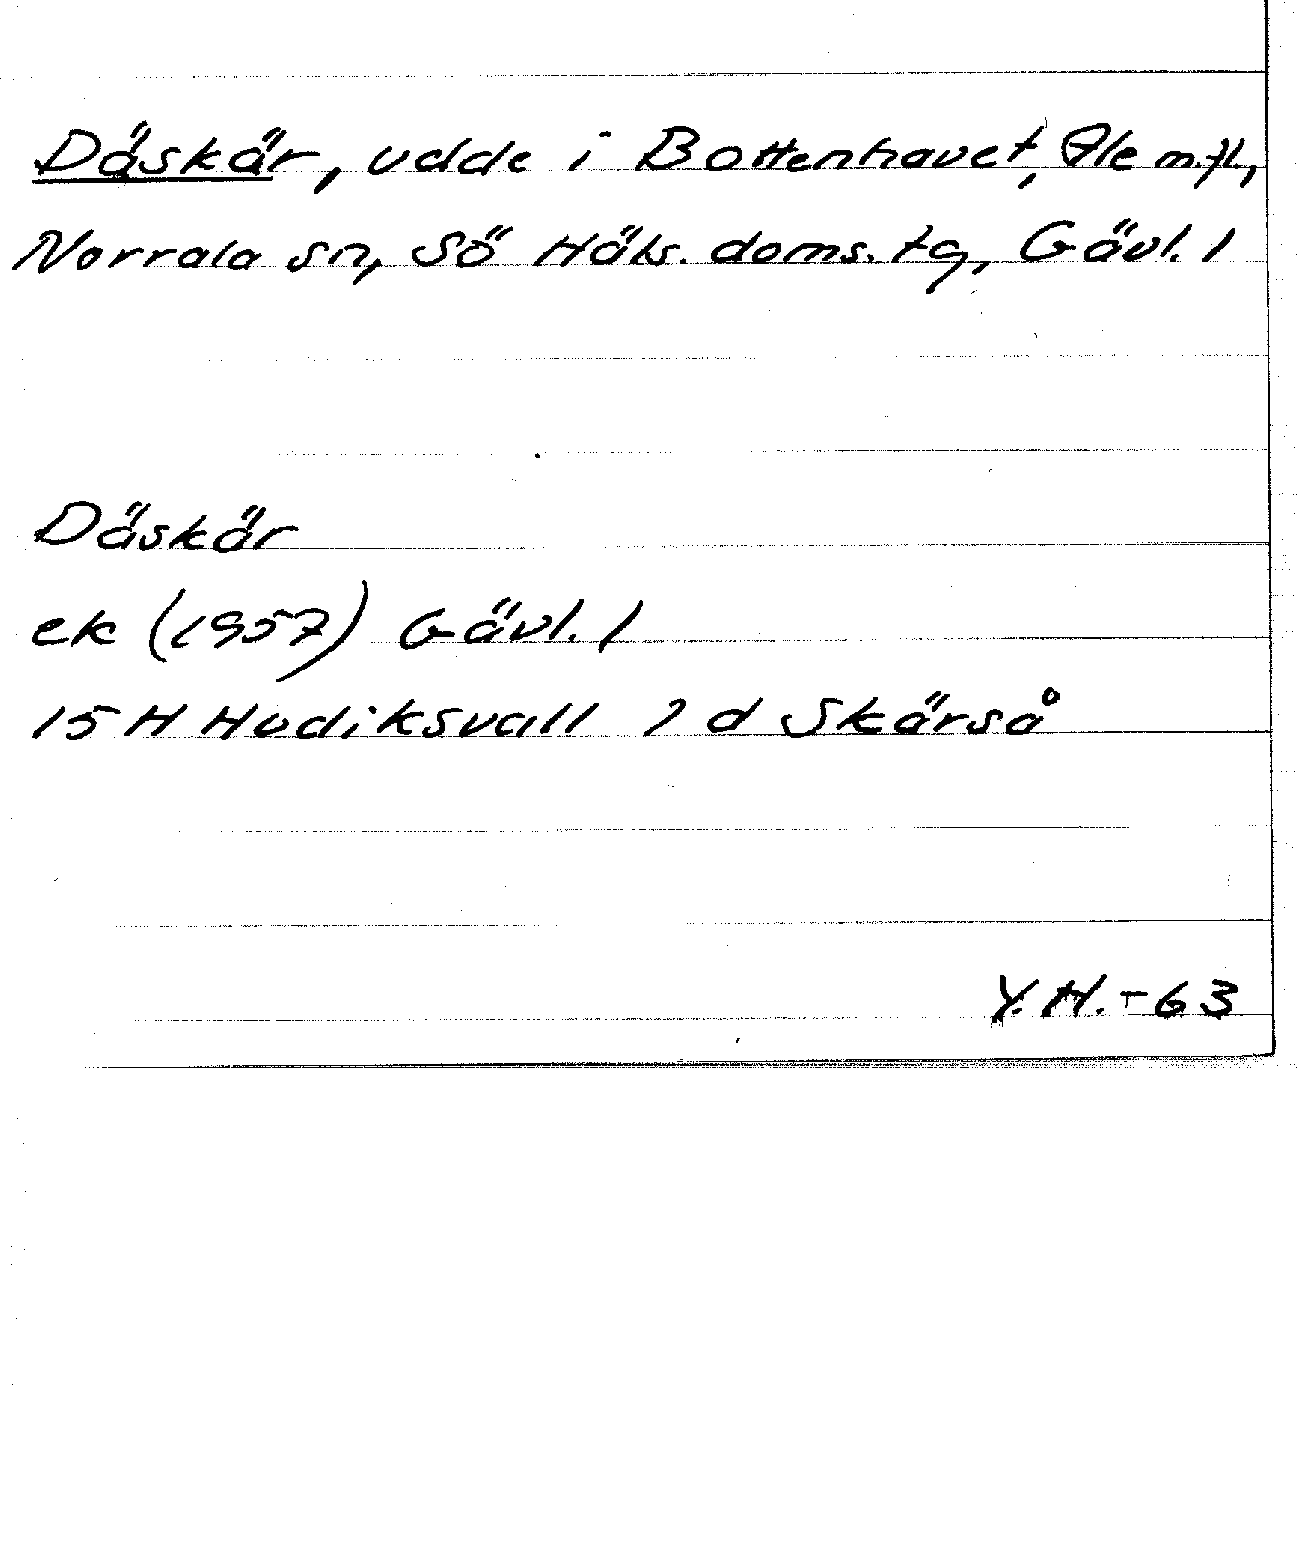 Däskär, udde i Bottenhavet, Ale m.fl.,
Norrala sn, Sö Häls. doms. tg, Gävl. l
Däskär
ek (1957) Gävl. l
15 H Hudiksvall 2 d Skärså
Y.H.-63